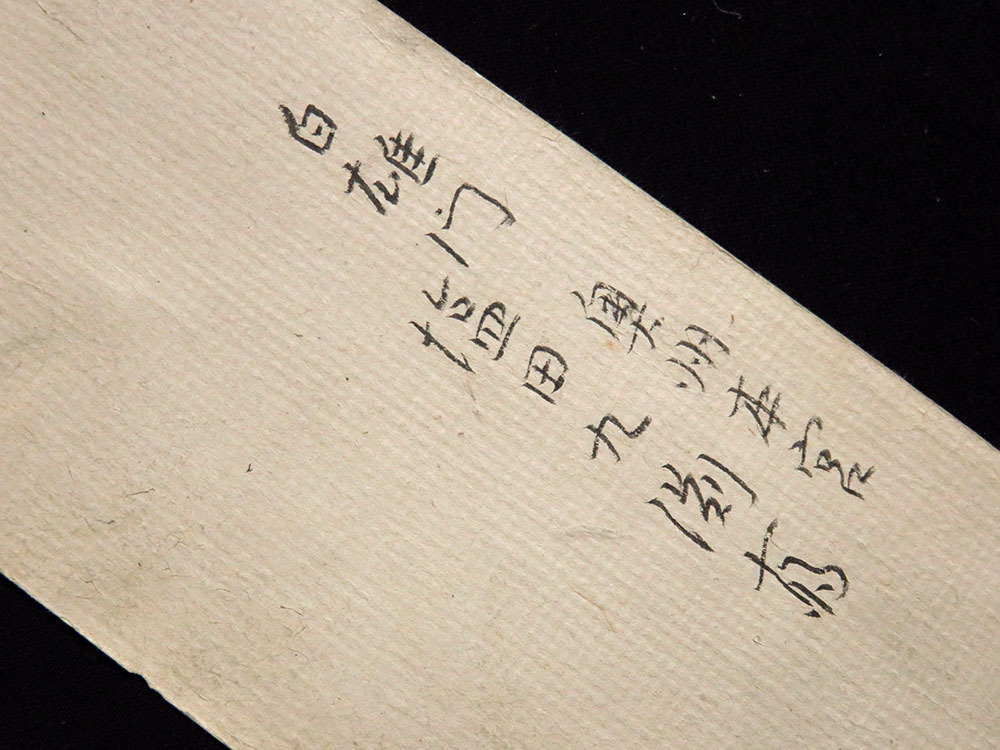 白雄门
奥州本宮
塩田九渕